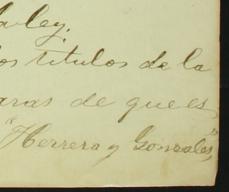 la ley.
los titulos de la
aras de que es
"Herrera y Gonzales",